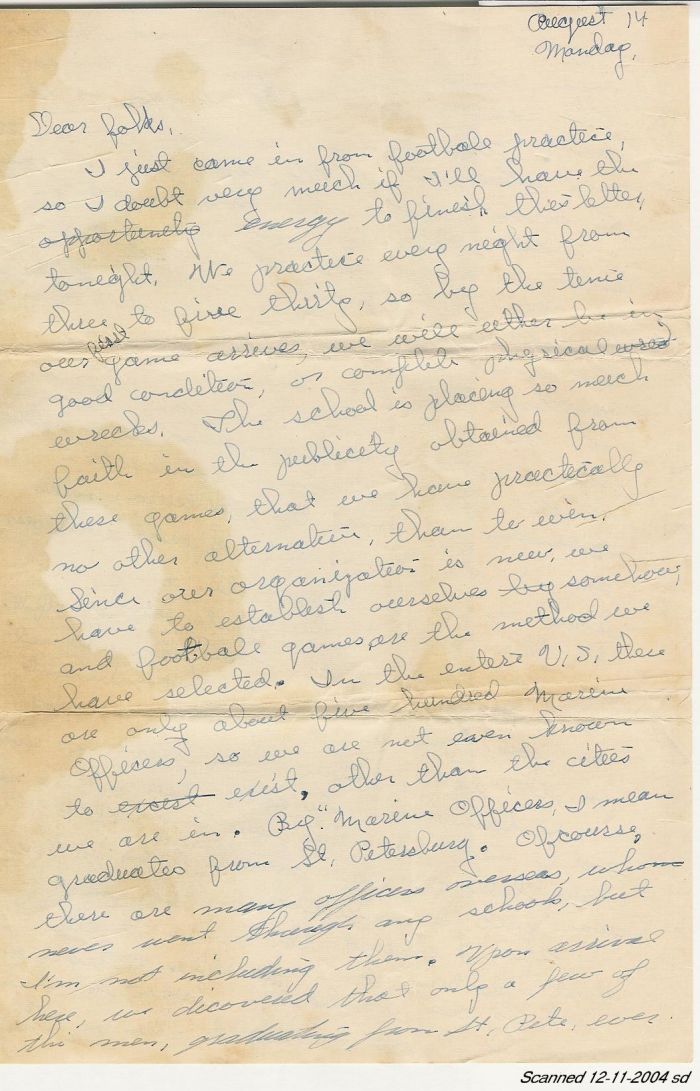 August 14
Monday,
Dear folks,
I just came in from football practice,
so I doubt very much if I'll have the
opportunety energy to finish this letter,
tonight. We practice every night from
three to five thirty, so by the time
our first game arrives, we will either be in
good condition, or complete physical wrea
wrecks. The school is placing so much
faith in the publicity obtained from
these games, that we have practically
no other alternative, than to win.
Since our organization is new, we
have to establish ourselves by somehow,
and football games, are the method we
have selected. In the entire U.S. there
are only about five hundred Marine
Officers, so we are not even known
to excist exist, other than the cities
we are in. By "Marine Officers, I mean
graduates from St. Petersburg. Ofcourse,
there are many officers overseas, whom
never went through any schools, but
I'm not including them. Upon arrival
here, we dicovered that only a few of
the men, graduating from St. Pete, ever
Scanned 12-11-2004 sd